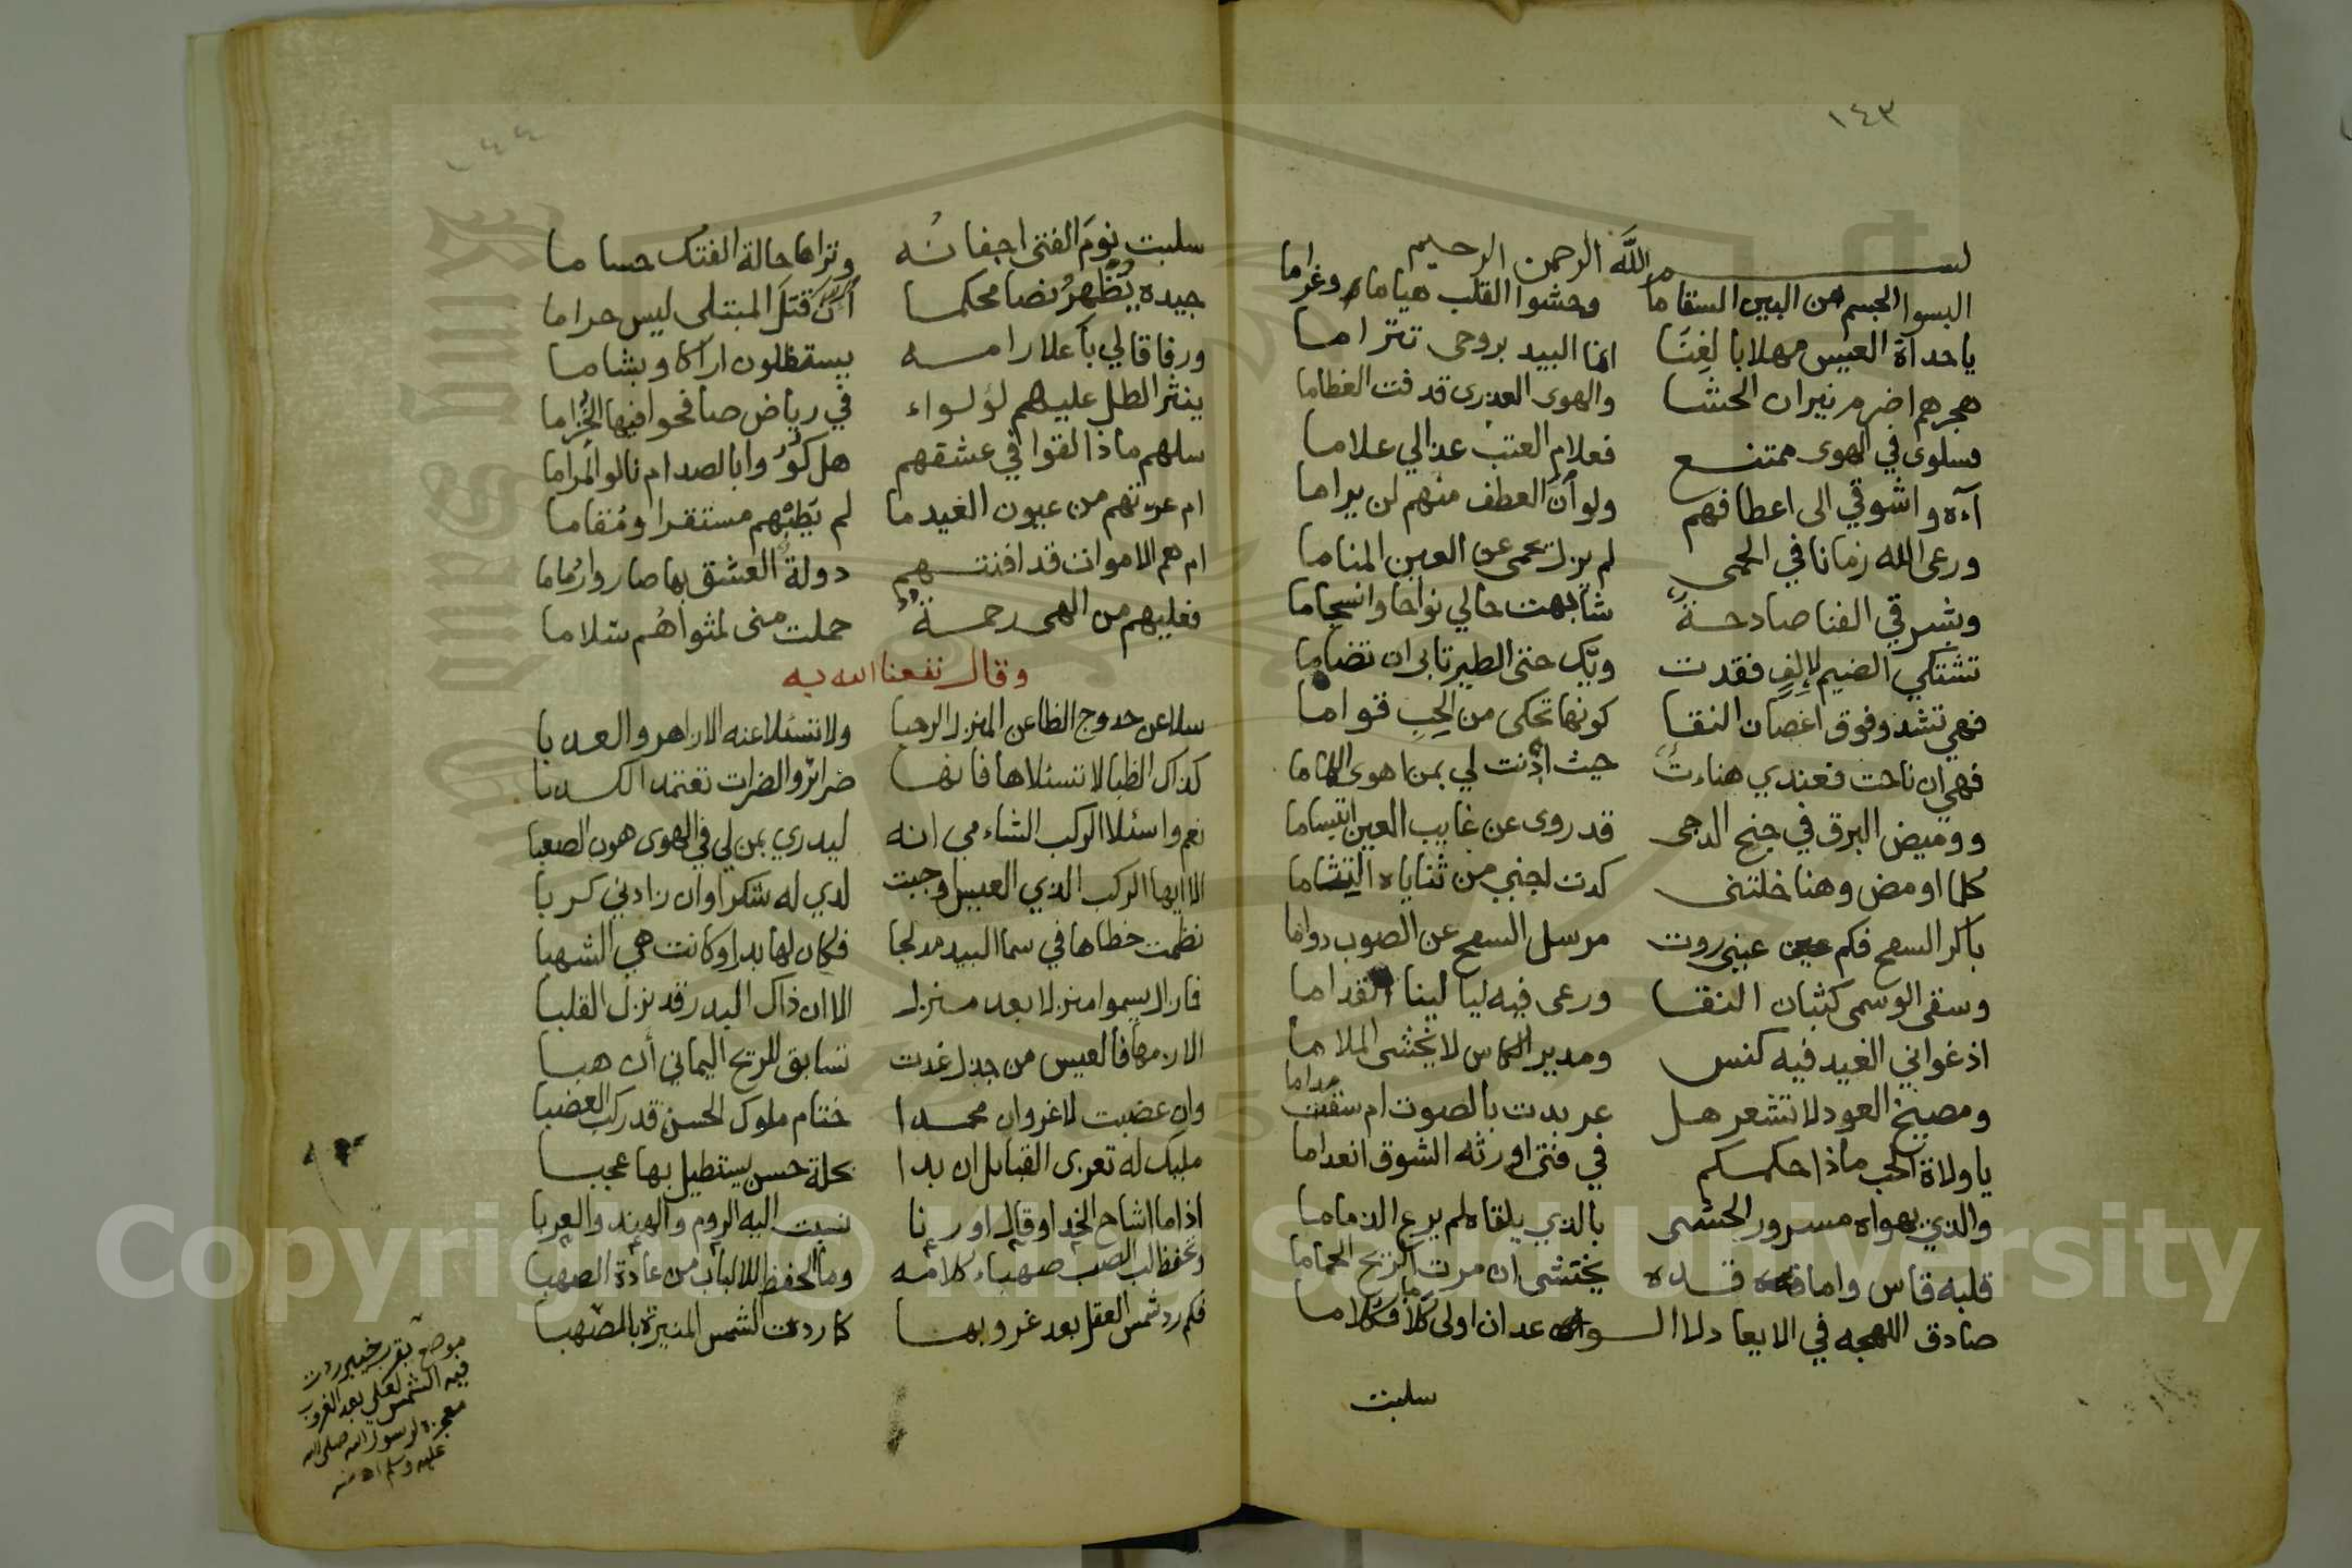 ١٤٣
بسم الله الرحمن الرحيم
البسوا الجسم من البين السقاما وحشوا القلب هياما وغراما
ياحداة العيس مهلا بالغنا انما البيد بروحي تتراما
هجرهم اضرم نيران الحشا والهوى العذرى قد فت العظاما
فسلوى في الهوى ممتنع فعلام العتب عذالي علاما
آءه واشوقي الى اعطافهم ولو أن العطف منهم لن يراما
ورعى الله زمانا في الحمى لم يزل يحمى عن العين المناما
وشرقي الفنا صادحة شابهت حالي نواحا وانسجاما
تشتكي الضيم لإلف فقدت وبك حتى الطير تابى ان تضاما
فهي تشدو فوق اغصان النقا كونها تحكى من الحب قواما
فهي ان ناحت فعندي هناءت حيث اذنت لي بمن اهوى
ووميض البرق في جنح الدجى قد روى عن غايب العين ابتساما
كلما اومض وهنا خلتنى كدت اجني من ثناياه التثاما
باكر السفح فكم عين عبنى روت مرسل السفح عن الصوب دواما
وسقى الوسمى كثبان النقا ورعى فيه ليالينا القداما
اذ غواني الغيد فيه كنس ومدير الكاس لا يخشى الملاما
ومصيخ العود لا تشعر هل عربدت بالصوت ام سقت مداما
ياولاة الحب ماذا حكمكم في فتى اورثه الشوق انعداما
والذي يهواه مسرور الحشى بالذي يلقاه لم يرع الذماما
قلبه قاس واما قده يختشى ان مرت الريح الحماما
صادق اللهجه في الايعاد لا الوعد ان اولى كلا فكلاما
سلبت
١٤٤
سلبت نوم الفتى اجفانه وتراها حالة الفتك حساما
جيده يظهر نصا محكما أن قتل المبتلى ليس حراما
ورفاقا لي بأعلا رامه يستظلون اراكا وبشاما
ينثر الطل عليهم لؤلواء في رياض صافحوا فيها الخزاما
سلهم ماذا لقوا في عشقهم هل كووا بالصد ام نالوا المراما
ام عرتهم من عيون الغيد ما لم يطبهم مستقرا ومقاما
ام هم الاموات قد افنتهم دولة العشق بها صاروا رماما
فعليهم من الهى رحمة حملت منى لمثواهم سلاما
وقال نفعنا الله به
سلا عن حدوج الظاعن المنزل الرحبا ولا تسئلا عنه الازاهر والعدبا
كذاك الظبا لا تسئلاها فانها ضرائر والضرات تعتمد الكدبا
نعم واسئلا الركب الشاءمي انه ليدري بمن لي في الهوى هون الصعبا
الا ايها الركب الذي العيس اوجبت لدي له شكرا وان زادني كربا
نظمت خطاها في سما البيد مدلجا فكان لها بدرا وكانت هي الشهبا
فان ال يسموا منزلا بعد منزل الا ان ذاك البدر قد نزل القلبا
الا زمها فالعيس من جدل غدت تسابق للريح اليماني أن هبا
وان عضبت لا غرو ان محمدا ختام ملوك الحسن قد ركب العضبا
مليك له تعزى القبائل ان بدا بحلة حسن يستطيل بها عجبا
اذا ما اشاح الخد او قال او رنا نسبت اليه الروم والهند والعربا
وتحفظ لب الصب صهباء كلامه وما الحفظ للالباب من عادة الصهبا
فكم رد شمس العقل بعد غروبها كما ردت الشمس المنيرة بالمصهبا
موضع بقرب خيبر ردت
فيه الشمس لعلي بعد الغروب
معجزة لرسول الله صلى الله
عليه وسلم اه منه
Copyright © King Saud University